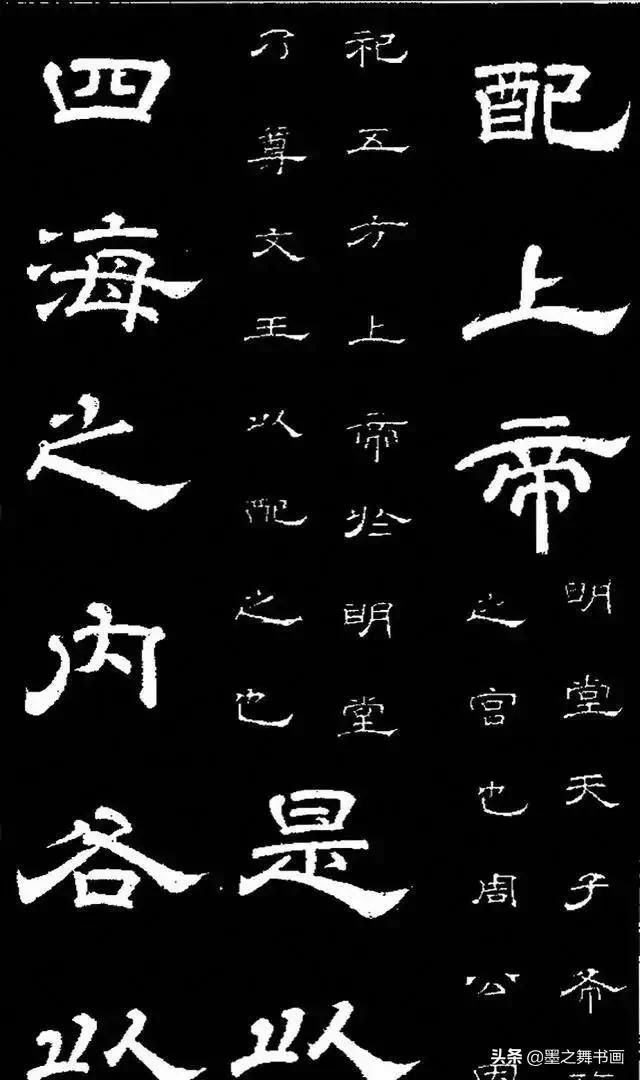 配上帝
明堂天子布
之宮也周公
祀五方上帝於明堂
乃尊文王以配之也
是以
四海之內各以
头条 @墨之舞书画